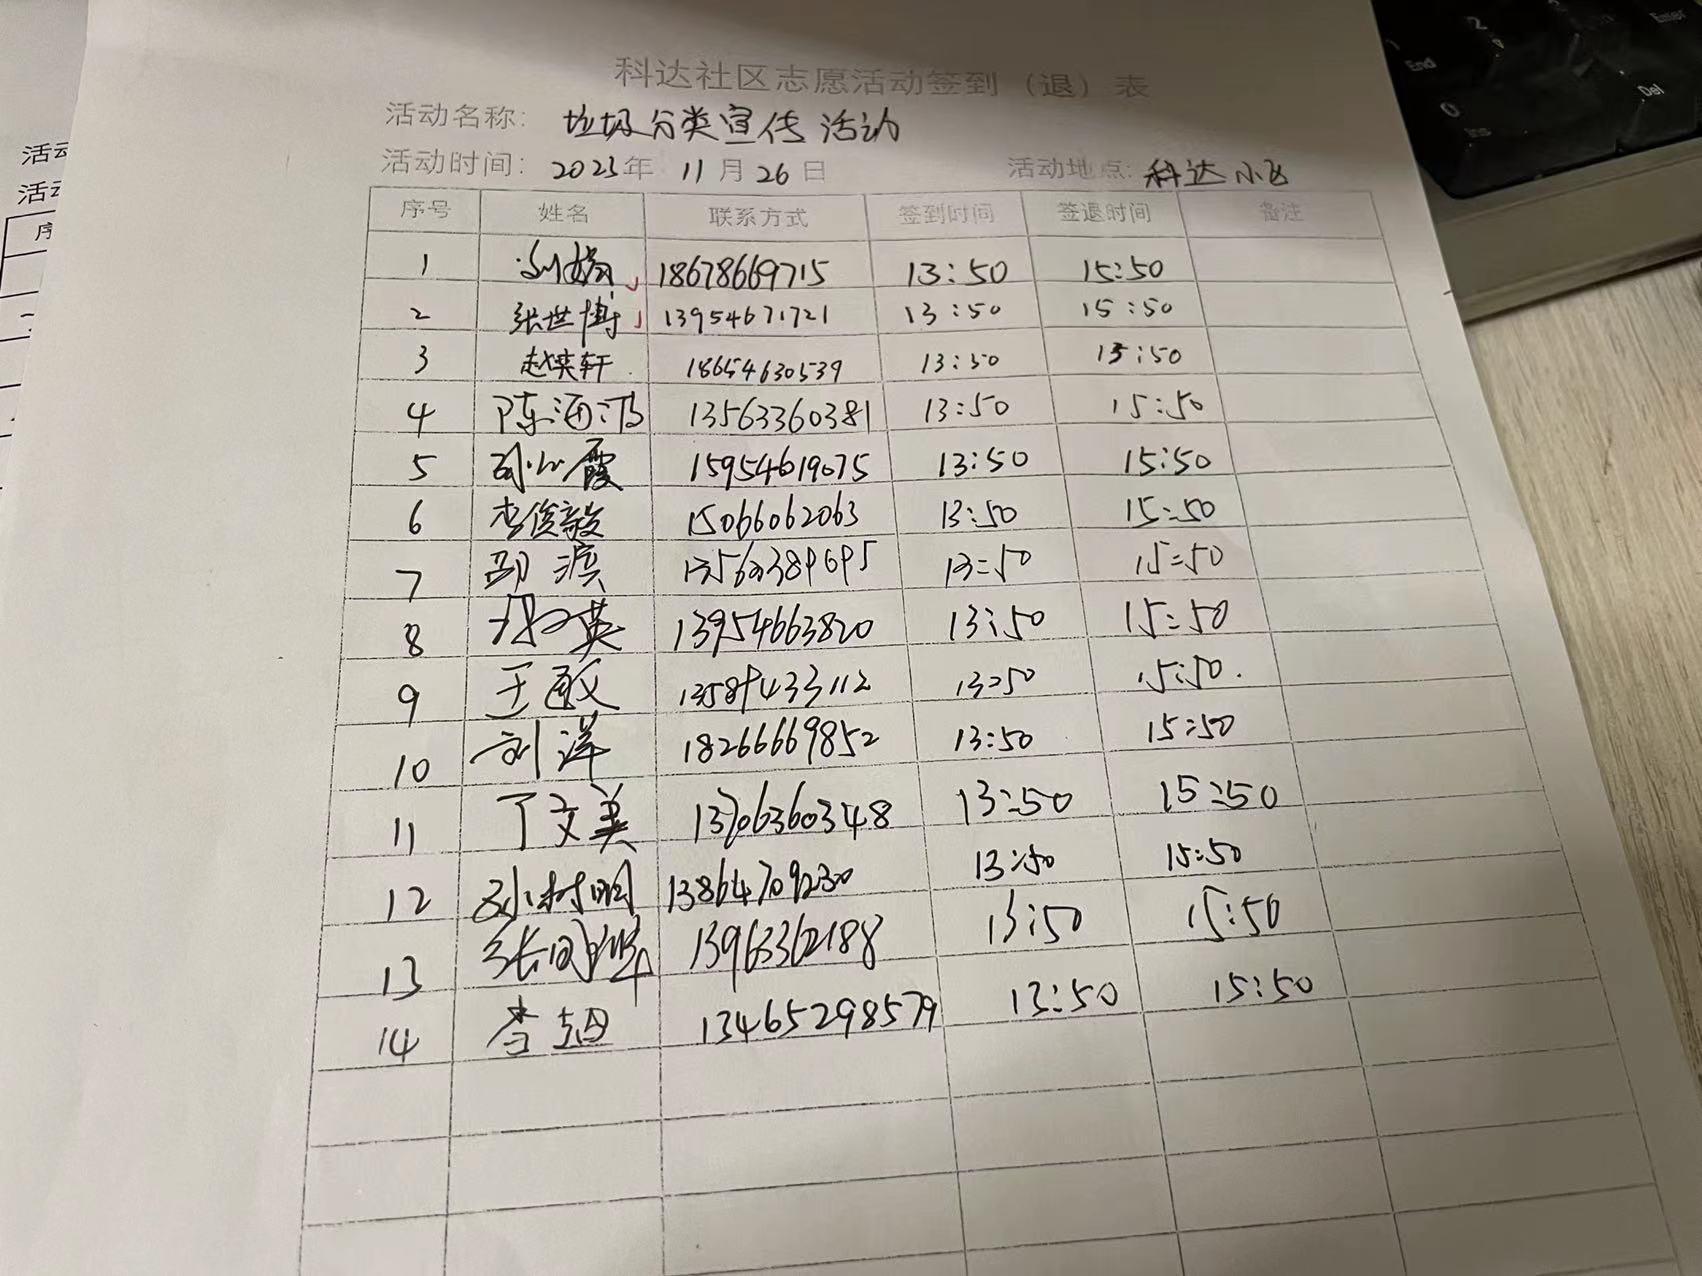 科达社区志愿活动签到（退）表
活动名称: 垃圾分类宣传活动
活动时间: 2025年 11月26日 活动地点: 科达小区
序号 姓名 联系方式 签到时间 签退时间 备注
1 18678669715 13:50 15:50
2 张世博 13954671721 13:50 15:50
3 赵英轩 18654630539 13:50 15:50
4 陈海鸿 13563360381 13:50 15:50
5 刘小霞 15954619075 13:50 15:50
6 李俊毅 15066062063 13:50 15:50
7 邵滨 13563389695 13:50 15:50
8 13954663820 13:50 15:50
9 王敏 13589433112 13:50 15:50.
10 刘洋 18266669852 13:50 15:50
11 丁文美 13706360348 13:50 15:50
12 孙树明 13864709230 13:50 15:50
13 13963362188 13:50 15:50
14 李娟 13465298579 13:50 15:50
活动
活动
序
End
2
0
Ins
Del
Enter